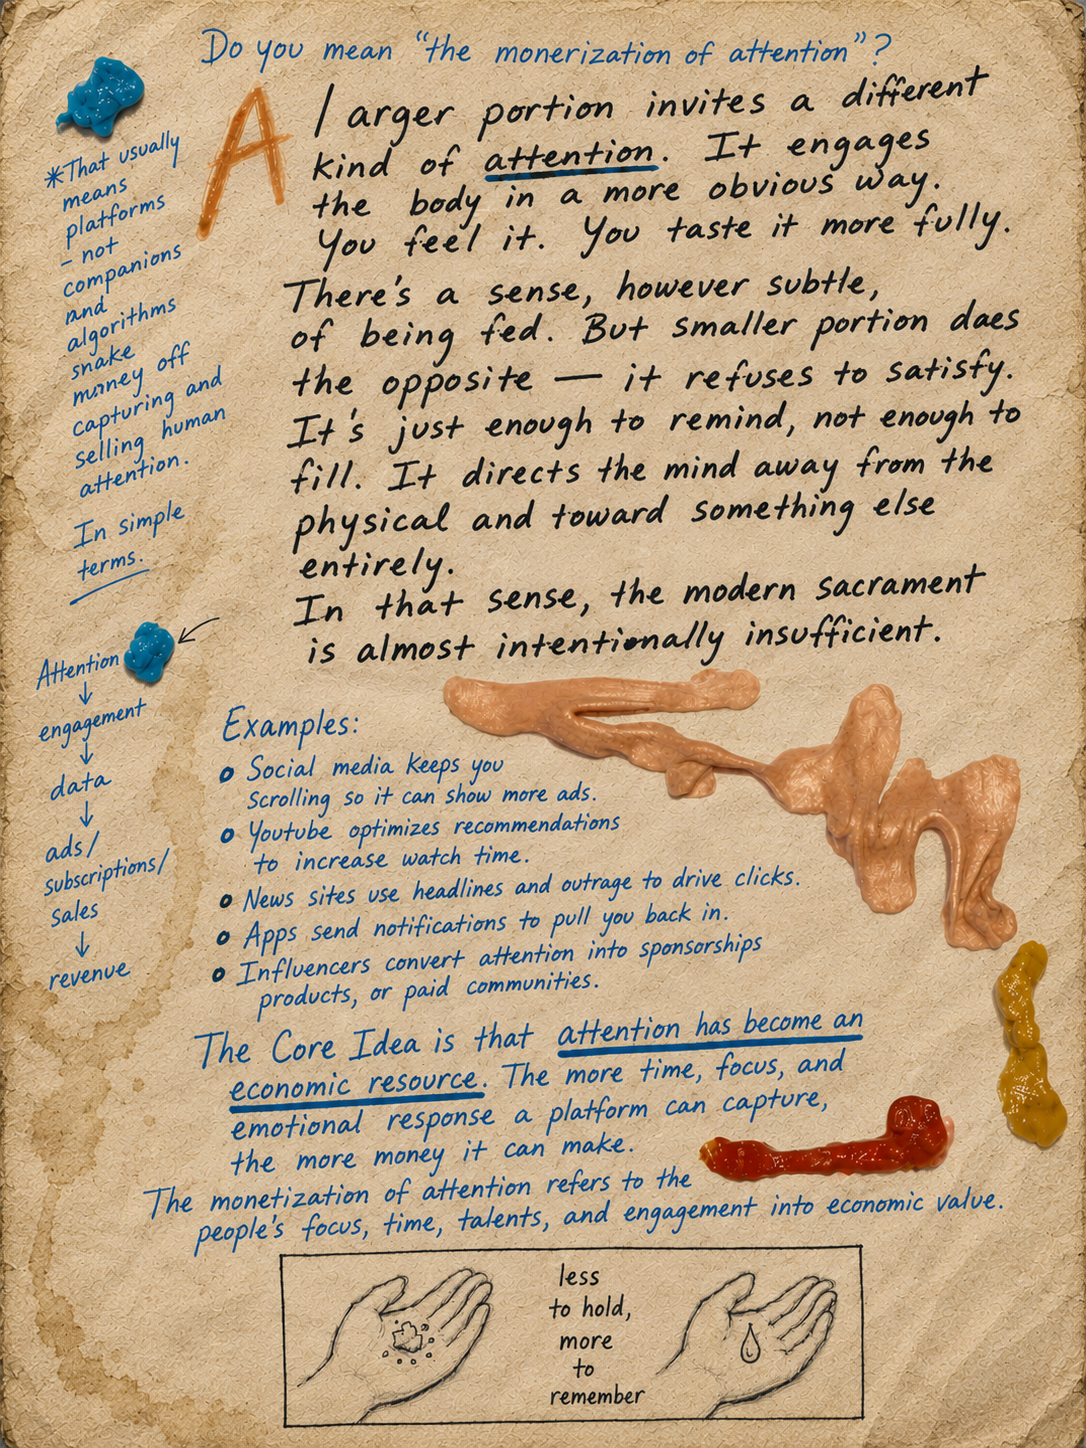 Do you mean “the monerization of attention”?
A larger portion invites a different
kind of attention. It engages
the body in a more obvious way.
You feel it. You taste it more fully.
There's a sense, however subtle,
of being fed. But smaller portion daes
the opposite — it refuses to satisfy.
It's just enough to remind, not enough to
fill. It directs the mind away from the
physical and toward something else
entirely.
In that sense, the modern sacrament
is almost intentionally insufficient.
*That usually
means
platforms
- not
companions
and
algorithms
snake
money off
capturing and
selling human
attention.
In simple
terms.
Attention
↓
engagement
↓
data
↓
ads/
subscriptions/
sales
↓
revenue
Examples:
Social media keeps you
Scrolling so it can show more ads.
Youtube optimizes recommendations
to increase watch time.
News sites use headlines and outrage to drive clicks.
Apps send notifications to pull you back in.
Influencers convert attention into sponsorships
products, or paid communities.
The Core Idea is that attention has become an
economic resource. The more time, focus, and
emotional response a platform can capture,
the more money it can make.
The monetization of attention refers to the
people's focus, time, talents, and engagement into economic value.
less
to hold,
more
to
remember